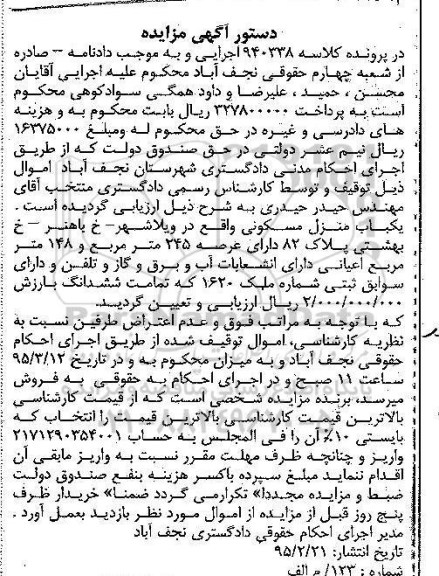 دستور آگهی مزایده
در پرونده کلاسه ۹۴۰۳۳۸ اجرایی و به موجب دادنامه – صادره
از شعبه چهارم حقوقی نجف آباد محکوم علیه اجرایی آقایان
محسن ، حمید ، علیرضا و داود همگی سوادکوهی محکوم
است به پرداخت ۳۲۷۸۰۰۰۰۰ ریال بابت محکوم به و هزینه
های دادرسی و غیره در حق محکوم له ومبلغ ۱۶۳۷۵۰۰۰
ریال نیم عشر دولتی در حق صندوق دولت که از طریق
اجرای احکام مدنی دادگستری شهرستان نجف آباد اموال
ذیل توقیف و توسط کارشناس رسمی دادگستری منتخب آقای
مهندس حیدر حیدری به شرح ذیل ارزیابی گردیده است .
یکباب منزل مسکونی واقع در ویلاشهر– خ باهنر – خ
بهشتی پلاک ۸۲ دارای عرصه ۲۴۵ متر مربع و ۱۴۸ متر
مربع اعیانی دارای انشعابات آب و برق و گاز و تلفن و دارای
سوابق ثبتی شماره ملک ۱۶۲۰ که تمامت ششدانگ بارزش
۲/۰۰۰/۰۰۰/۰۰۰ ریال ارزیابی و تعیین گردید.
که با توجه به مراتب فوق و عدم اعتراض طرفین نسبت به
نظریه کارشناسی، اموال توقیف شده از طریق اجرای احکام
حقوقی نجف آباد و به میزان محکوم به و در تاریخ ۹۵/۳/۱۲
ساعت ۱۱ صبح و در اجرای احکام به حقوقی به فروش
میرسد، برنده مزایده شخصی است که از قیمت کارشناسی
بالاترین قیمت کارشناسی بالاترین قیمت را انتخاب که
بایستی ۱۰٪ آن را فی المجلس به حساب ۲۱۷۱۲۹۰۳۵۴۰۰۱
واریز و چنانچه ظرف مهلت مقرر نسبت به واریز مابقی آن
اقدام ننماید مبلغ سپرده باکسر هزینه بنفع صندوق دولت
ضبط و مزایده مجددا" تکرارمی گردد ضمنا" خریدار ظرف
پنج روز قبل از مزایده از اموال مورد نظر بازدید بعمل آورد .
مدیر اجرای احکام حقوقی دادگستری نجف آباد
تاریخ انتشار: ۹۵/۲/۲۱
شماره : ۱۲۳/ م الف